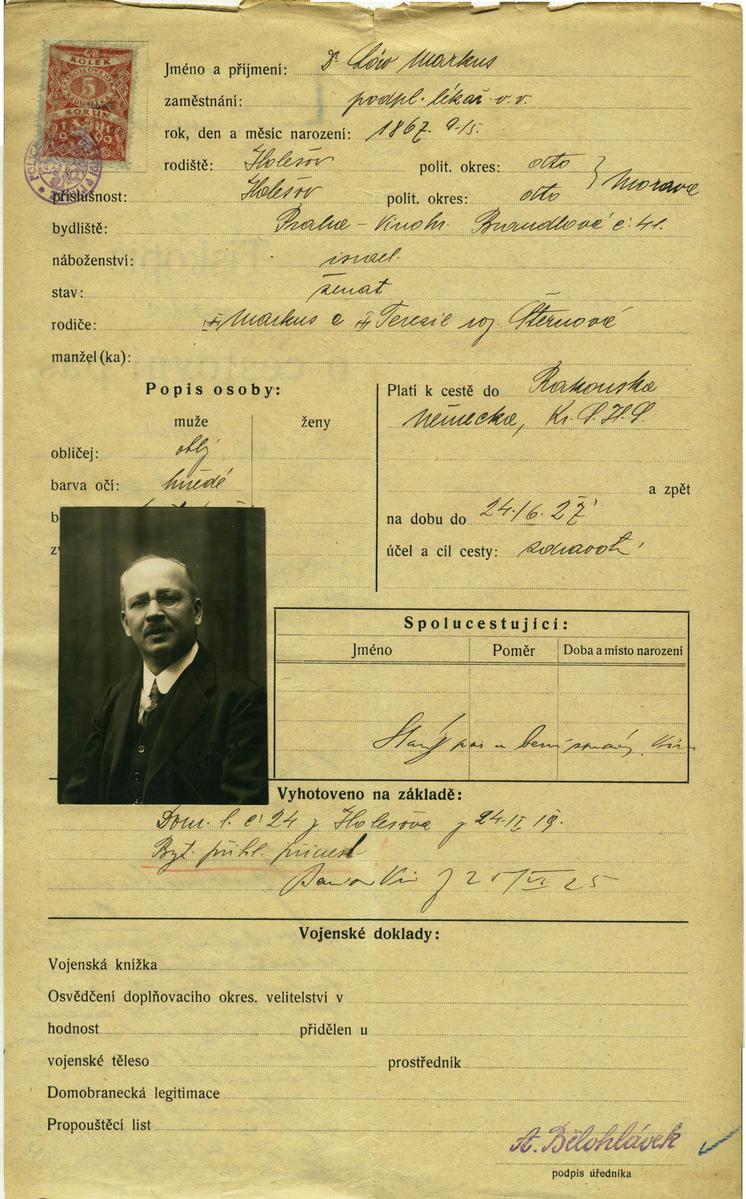 KOLEK
5
KORUN
1919
Jméno a příjmení: Dr Löw Markus
zaměstnání: podpl. lékař v.v.
rok, den a měsíc narození: 1867. 9./5.
rodiště: Holešov polit. okres: dtto
příslušnost: Holešov polit. okres: dtto } Morava
bydliště: Praha - Vinohr. Brandlova č. 41.
náboženství: israel.
stav: ženat
rodiče: Markus a Terezie roz. Šternová
manžel(ka):
Popis osoby:
muže ženy
obličej: oblý
barva očí: hnědé
Platí k cestě do Rakouska
Německa, Kr. S.H.S.
a zpět
na dobu do 24./6. 27
účel a cíl cesty: zdravotní
Spolucestující:
Jméno Poměr Doba a místo narození
Starý pas u
Vyhotoveno na základě:
Dom. l. č. 24 z Holešova z 24.II 19.
Byt. přihl.
25/VI 25
Vojenské doklady:
Vojenská knížka
Osvědčení doplňovacího okres. velitelství v
hodnost přidělen u
vojenské těleso prostředník
Domobranecká legitimace
Propouštěcí list
A. Bělohlávek
podpis úředníka